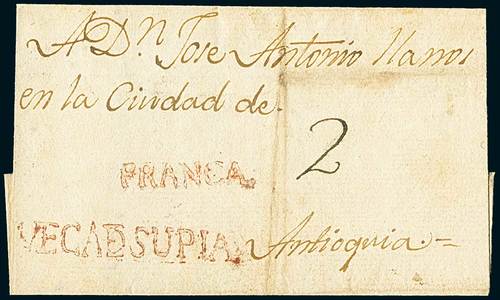 A Dn Jose Antonio Llanos
en la Ciudad de.
2
FRANCA.
VEGADSUPIA. Antioquia.=